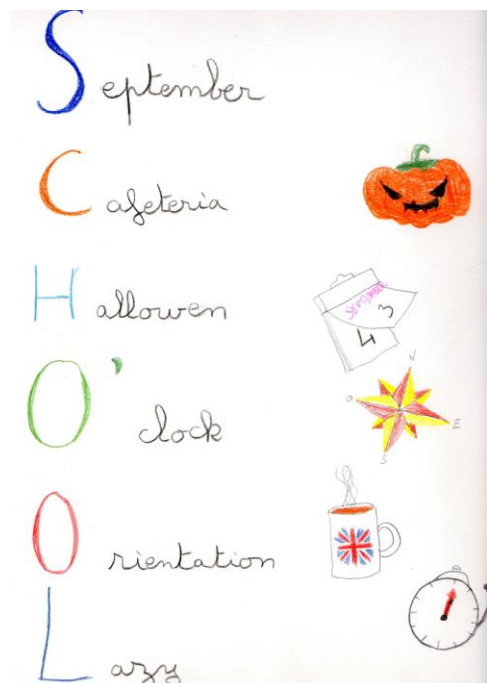 September
Cafeteria
Hallowen
O'clock
Orientation
Lazy
SEPTEMBER
3
4
N
O
E
S